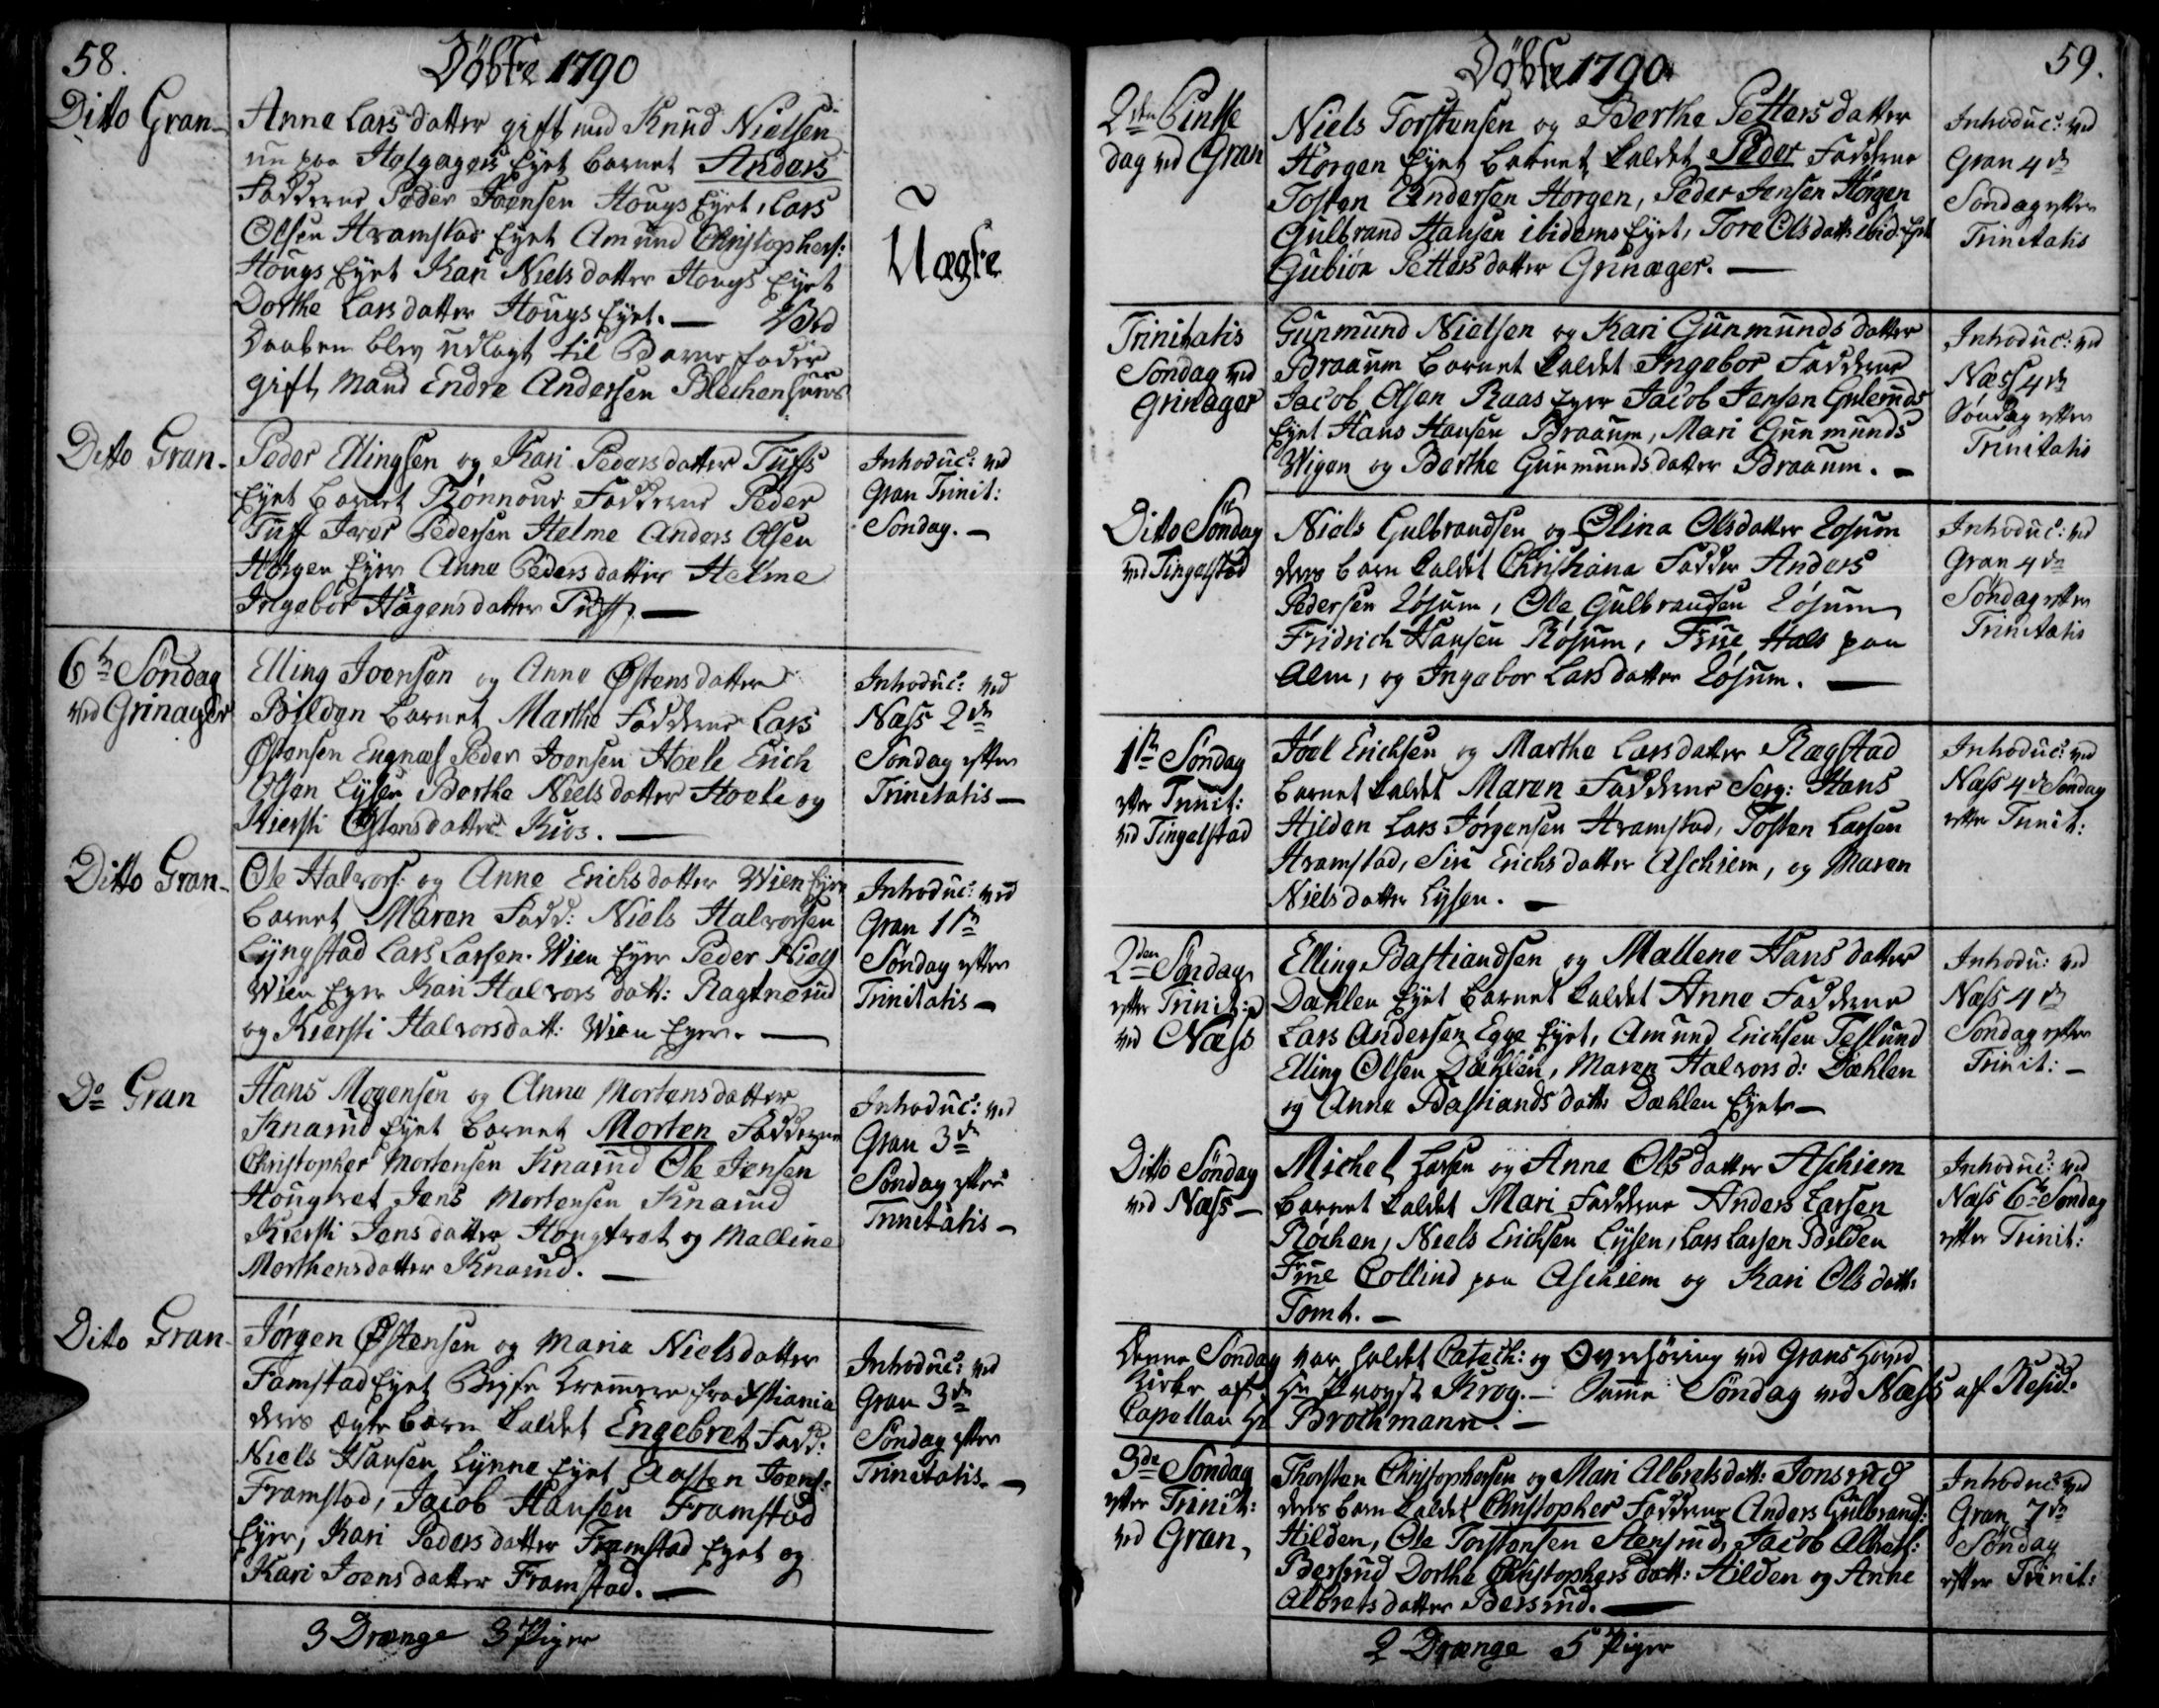 58.
Döbte 1790
Ditto Gran-
Anne Lars datter gift med Knud Nielsen
nu paa Eyet Barnet Anders
Fadderne Peder Joensen Hougs Eyet, Lars
Olsen Hramstad Eyet Amund Christophers:
Hougs Eyet Kari Niels datter Hougs Eyet
Dorthe Lars datter Hougs Eyet. — Ved
Daaben blev udlagt til Barne fader
gift Mand Endre Andersen
Uægte
Ditto Gran-
Peder Ellingsen og Kari Peders datter Tuffs
Eyet Barnet Rönnou Fadderne Peder
Tuff Iver Pedersen Helme Anders Olsen
Horgen Eyer Anne Peders datter Helme
Ingebor Hagens datter Tuff. —
Introduc: ved
Gran Trinit:
Sondag. —
6te Søndag
ved Grinager
Elling Joensen og Anne Østens datter
Bilden Barnet Marthe Fadderne Lars
Østensen Engnæs Peder Joensen Hoele Erich
Olsen Lysen Berthe Niels datter Hoele og
Kiersti Østens datter Kios. —
Introduc: ved
Næss 2den
Søndag efter
Trinitatis —
Ditto Gran-
Ole Halvors: og Anne Erichs datter Wien Eyer
Barnet Maren Fadd: Niels Halvorsen
Lyngstad Lars Larsen Wien Eyer Peder Niels
Wien Eyer Kari Halvors datt: Ragnerud
og Kiersti Halvorsdatt: Wien Eyer. —
Introduc: ved
Gran 1ste
Søndag efter
Trinitatis —
Do Gran
Hans Mogensen og Anne Mortens datter
Knarud Eyet Barnet Morten Fadderne
Christopher Mortensen Knarud Ole Jensen
Hougtvet Jens Mortensen Knarud
Kiersti Jens datter Hougtvet og Malline
Morthens datter Knarud. —
Introduc: ved
Gran 3de
Søndag efter
Trinitatis —
Dito Gran-
Jørgen Østensen og Maria Niels datter
Framstad Eyet fra Xstiania
deres ægte Barn kaldet Engebret Fadd:
Niels Hansen Lynne Eyet Aasten Joens:
Framstad, Jacob Hansen Framstad
Eyer, Kari Peders datter Framstad Eyet og
Kari Joens datter Framstad. —
Introduc: ved
Gran 3de
Søndag efter
Trinitatis. —
3 Drenge 3 Piger
59.
Döbte 1790.
2den Pintse
dag ved Gran
Niels Torstensen og Berthe Petters datter
Horgen Eyet Barnet kaldet Peder Fadderne
Tosten Andersen Horgen, Peder Jensen Horgen
Gulbrand Hansen ibidems Eyet, Tore Olsdatt: ibid: Eyet
Gubiør Petters datter Grinager. —
Introduc: ved
Gran 4de
Søndag efter
Trinitatis
Trinitatis
Søndag ved
Grinager
Gunmund Nielsen og Kari Gunmunds datter
Braaum Barnet kaldet Ingebor Fadderne
Jacob Olsen Raas Eyer Jacob Jensen Gulerud
Eyet Hans Hansen Braaum, Mari Gunmunds
Wigen og Berthe Gunmunds datter Braaum. —
Introduc: ved
Næss 4de
Søndag efter
Trinitatis
Ditto Søndag
ved Tingelstad
Niels Gulbrandsen og Olina Olsdatter Rosum
deres Barn kaldet Christiana Fadder Anders
Pedersen Rosum, Ole Gulbrandsen Rosum
Fridrich Hansen Rosum, Frue Hals paa
Alm, og Ingebor Lars datter Rosum. —
Introduc: ved
Gran 4de
Søndag efter
Trinitatis
1ste Søndag
efter Trinit:
ved Tingelstad
Joel Erichsen og Marthe Lars datter Rægstad
Barnet kaldet Maren Fadderne Serg: Hans
Hilden Lars Jørgensen Hramstad, Tosten Larsen
Hramstad, Siri Erichs datter Aschiem, og Maren
Niels datter Lysen. —
Introduc: ved
Næss 4de Søndag
efter Trinit:
2den Søndag
efter Trinit:
ved Næss
Elling Bastiandsen og Mallene Hans datter
Dæhlen Eyet Barnet kaldet Anne Fadderne
Lars Andersen Egge Eyet, Amund Erichsen Teslund
Elling Olsen Dæhlen, Maren Halvors d: Dæhlen
og Anne Bastiands datt: Dæhlen Eyet —
Introdu: ved
Næss 4de
Søndag efter
Trinit: —
Ditto Søndag
ved Næss —
Michel Larsen og Anne Ols datter Aschiem
Barnet kaldet Mari Fadderne Anders Larsen
Røchen, Niels Erichsen Lysen, Lars Larsen Bilden
Frue Collind paa Aschiem og Kari Ols datt:
Tomt. —
Introduc: ved
Næss 6te Søndag
efter Trinit:
Denne Søndag var holdet Catech: og Overhøring ved Grans Hoved
Kirke af Hr Provst Krog. — Samme Søndag ved Næss af Resid:
Capellan Hr Brochmann. —
3de Søndag
efter Trinit:
ved Gran,
Thorsten Christophersen og Mari Albrets datt: Jonsrud
deres Barn kaldet Christopher Fadderne Anders Gulbrands:
Hilden, Ole Torstensen Stensrud, Jacob Albrets:
Bersrud Dorthe Christophers datt: Hilden og Anne
Albrets datter Bersrud. —
Introduc: ved
Gran 7de
Søndag
efter Trinit:
2 Drenge 5 Piger